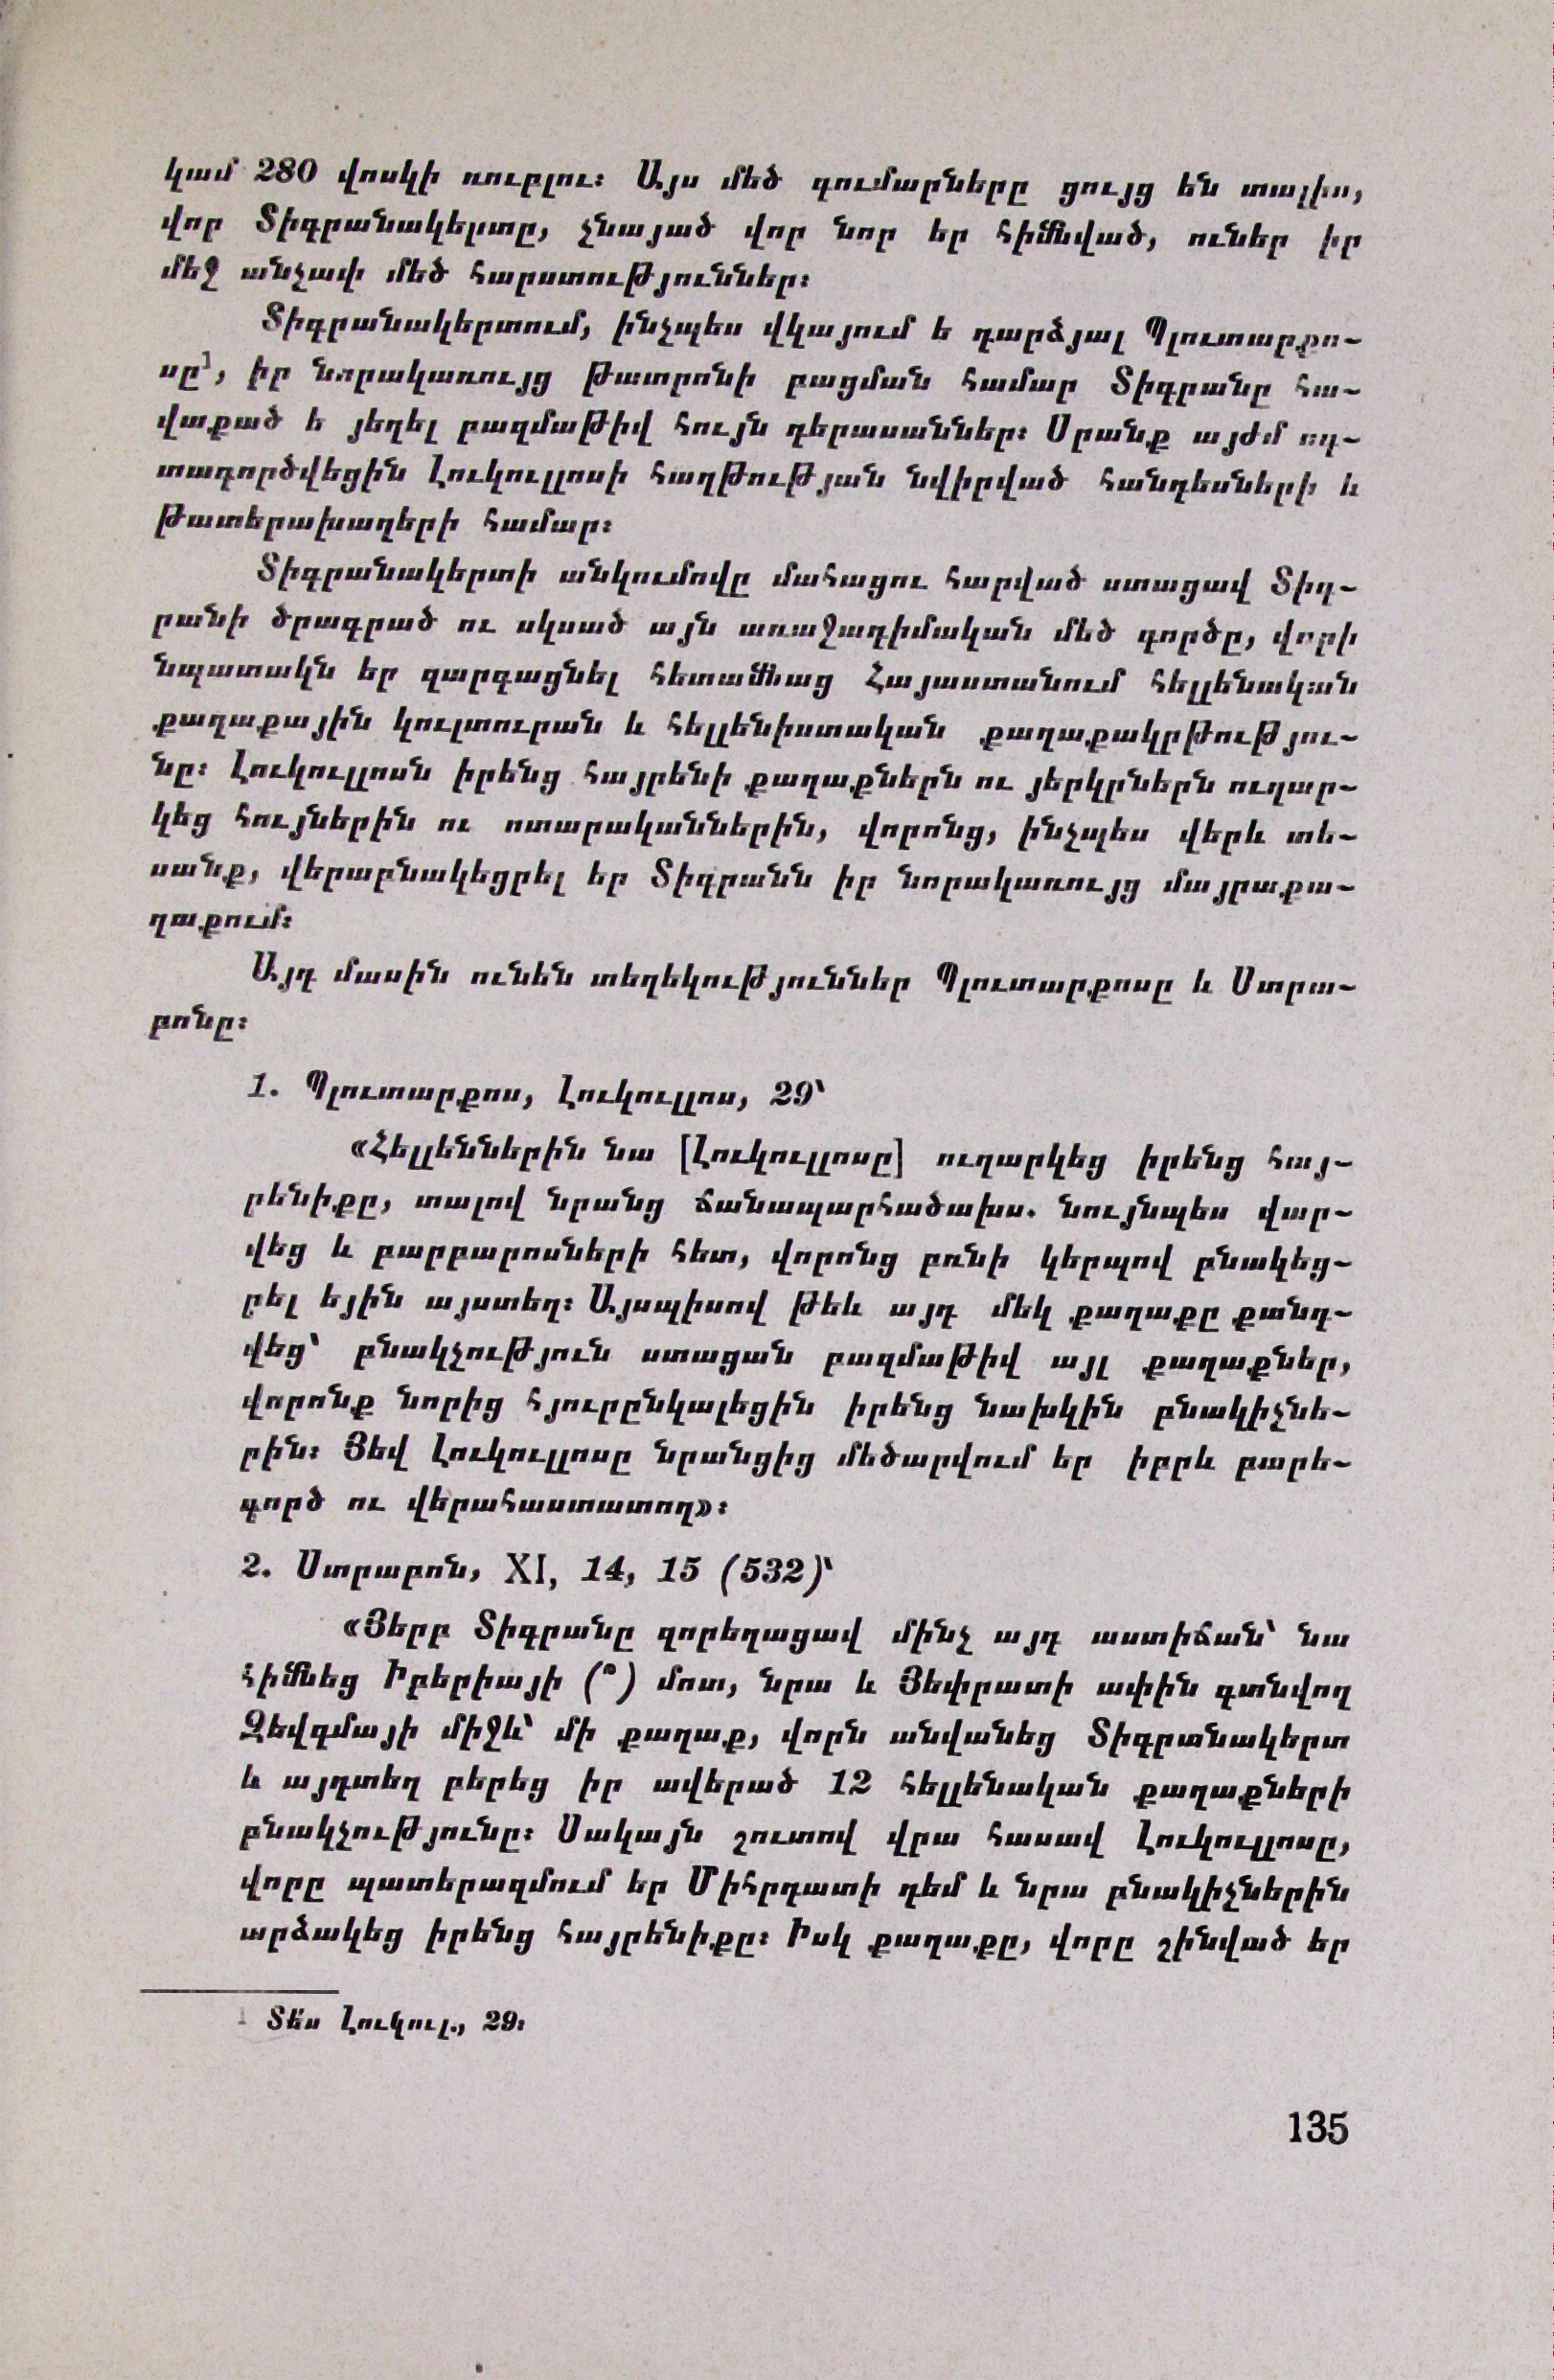 կամ 280 վոսկի ռուբլու։ Այս մեծ գումարները ցույց են տալիս,
վոր Տիգրանակերտը, չնայած վոր նոր եր հիմնված, ուներ իր
մեջ անչափ մեծ հարստություններ։
Տիգրանակերտում, ինչպես վկայում ե դարձյալ Պլուտարքո-
սը¹, իր նորակառույց թատրոնի բացման համար Տիգրանը հա-
վաքած ե յեղել բազմաթիվ հույն դերասաններ։ Սրանք այժմ ոգ-
տագործվեցին Լուկուլլոսի հաղթության նվիրված հանդեսների և
թատերախաղերի համար։
Տիգրանակերտի անկումովը մահացու հարված ստացավ Տիգ-
րանի ծրագրած ու սկսած այն առաջադիմական մեծ գործը, վորի
նպատակն եր զարգացնել հետամնաց Հայաստանում հելլենական
քաղաքային կուլտուրան և հելլենիստական քաղաքակրթությու-
նը։ Լուկուլլոսն իրենց հայրենի քաղաքներն ու յերկրներն ուղար-
կեց հույներին ու ոտարականներին, վորոնց, ինչպես վերև տե-
սանք, վերաբնակեցրել եր Տիգրանն իր նորակառույց մայրաքա-
ղաքում։
Այդ մասին ունեն տեղեկություններ Պլուտարքոսը և Ստրա-
բոնը։
1. Պլուտարքոս, Լուկուլլոս, 29՝
«Հելլեններին նա [Լուկուլլոսը] ուղարկեց իրենց հայ-
րենիքը, տալով նրանց ճանապարհածախս. նույնպես վար-
վեց և բարբարոսների հետ, վորոնց բռնի կերպով բնակեց-
րել եյին այստեղ։ Այսպիսով թեև այդ մեկ քաղաքը քանդ-
վեց՝ բնակչություն ստացան բազմաթիվ այլ քաղաքներ,
վորոնք նորից հյուրընկալեցին իրենց նախկին բնակիչնե-
րին։ Յեվ Լուկուլլոսը նրանցից մեծարվում եր իբրև բարե-
գործ ու վերահաստատող»։
2. Ստրաբոն, XI, 14, 15 (532)՝
«Յերբ Տիգրանը զորեղացավ մինչ այդ աստիճան՝ նա
հիմնեց Իբերիայի (՞) մոտ, նրա և Յեփրատի ափին գտնվող
Զեվգմայի միջև՝ մի քաղաք, վորն անվանեց Տիգրանակերտ
և այդտեղ բերեց իր ավերած 12 հելլենական քաղաքների
բնակչությունը։ Սակայն շուտով վրա հասավ Լուկուլլոսը,
վորը պատերազմում եր Միհրդատի դեմ և նրա բնակիչներին
արձակեց իրենց հայրենիքը։ Իսկ քաղաքը, վորը շինված եր
¹ Տե՛ս Լուկուլ., 29։
135